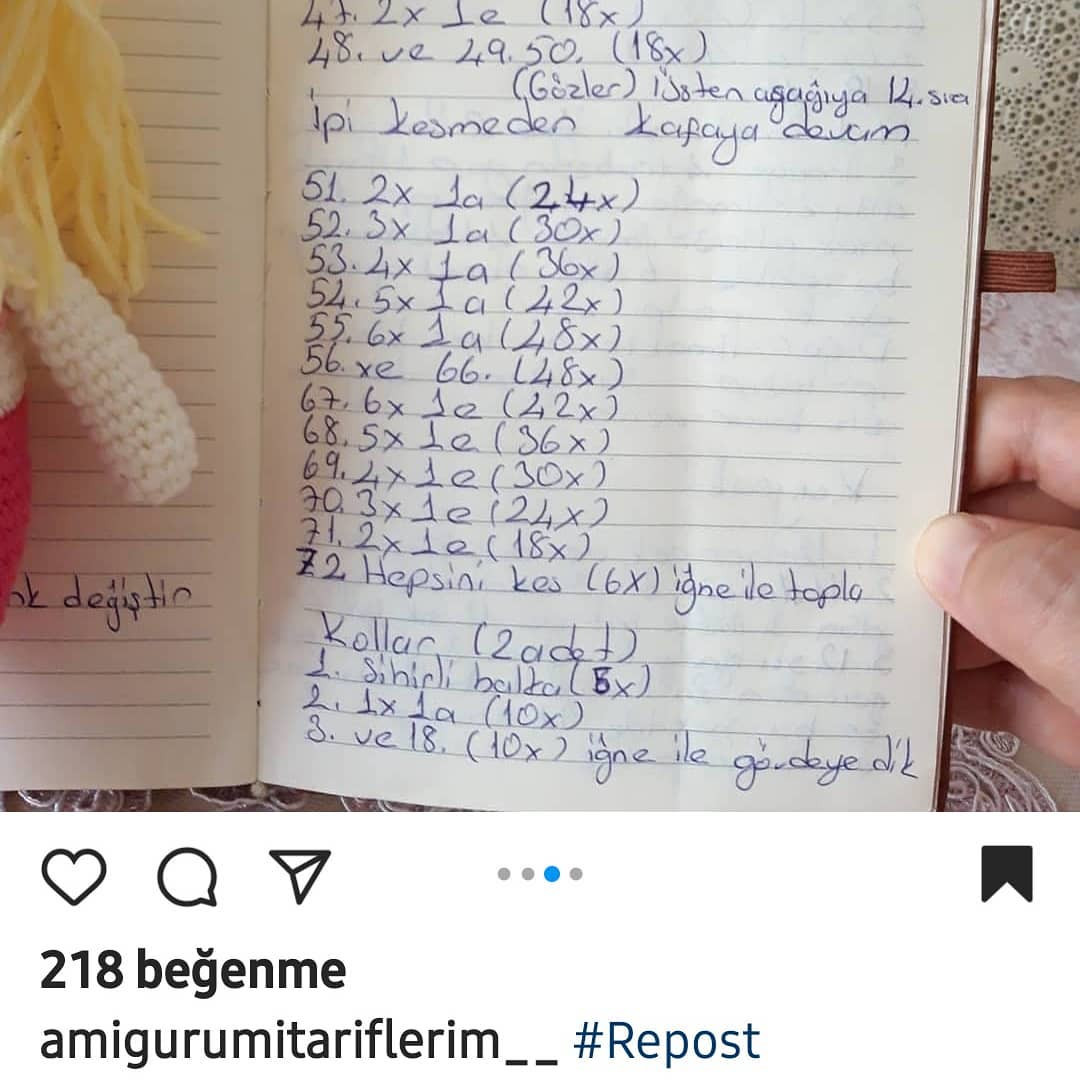 47. 2x 1e (18x)
48. ve 49.50. (18x)
(Gözler) üstten aşağıya 12. sıra
İpi kesmeden kafaya devam
51. 2x 1a (24x)
52. 3x 1a (30x)
53. 4x 1a (36x)
54. 5x 1a (42x)
55. 6x 1a (48x)
56. xe 66. (48x)
67. 6x 1e (42x)
68. 5x 1e (36x)
69. 4x 1e (30x)
70. 3x 1e (24x)
71. 2x 1e (18x)
72 Hepsini kes (6x) iğne ile topla
değiştir
Kollar (2 adet)
1. Sihirli halka (5x)
2. 1x 1a (10x)
3. ve 18. (10x) iğne ile gövdeye dik
218 beğenme
amigurumitariflerim__ #Repost